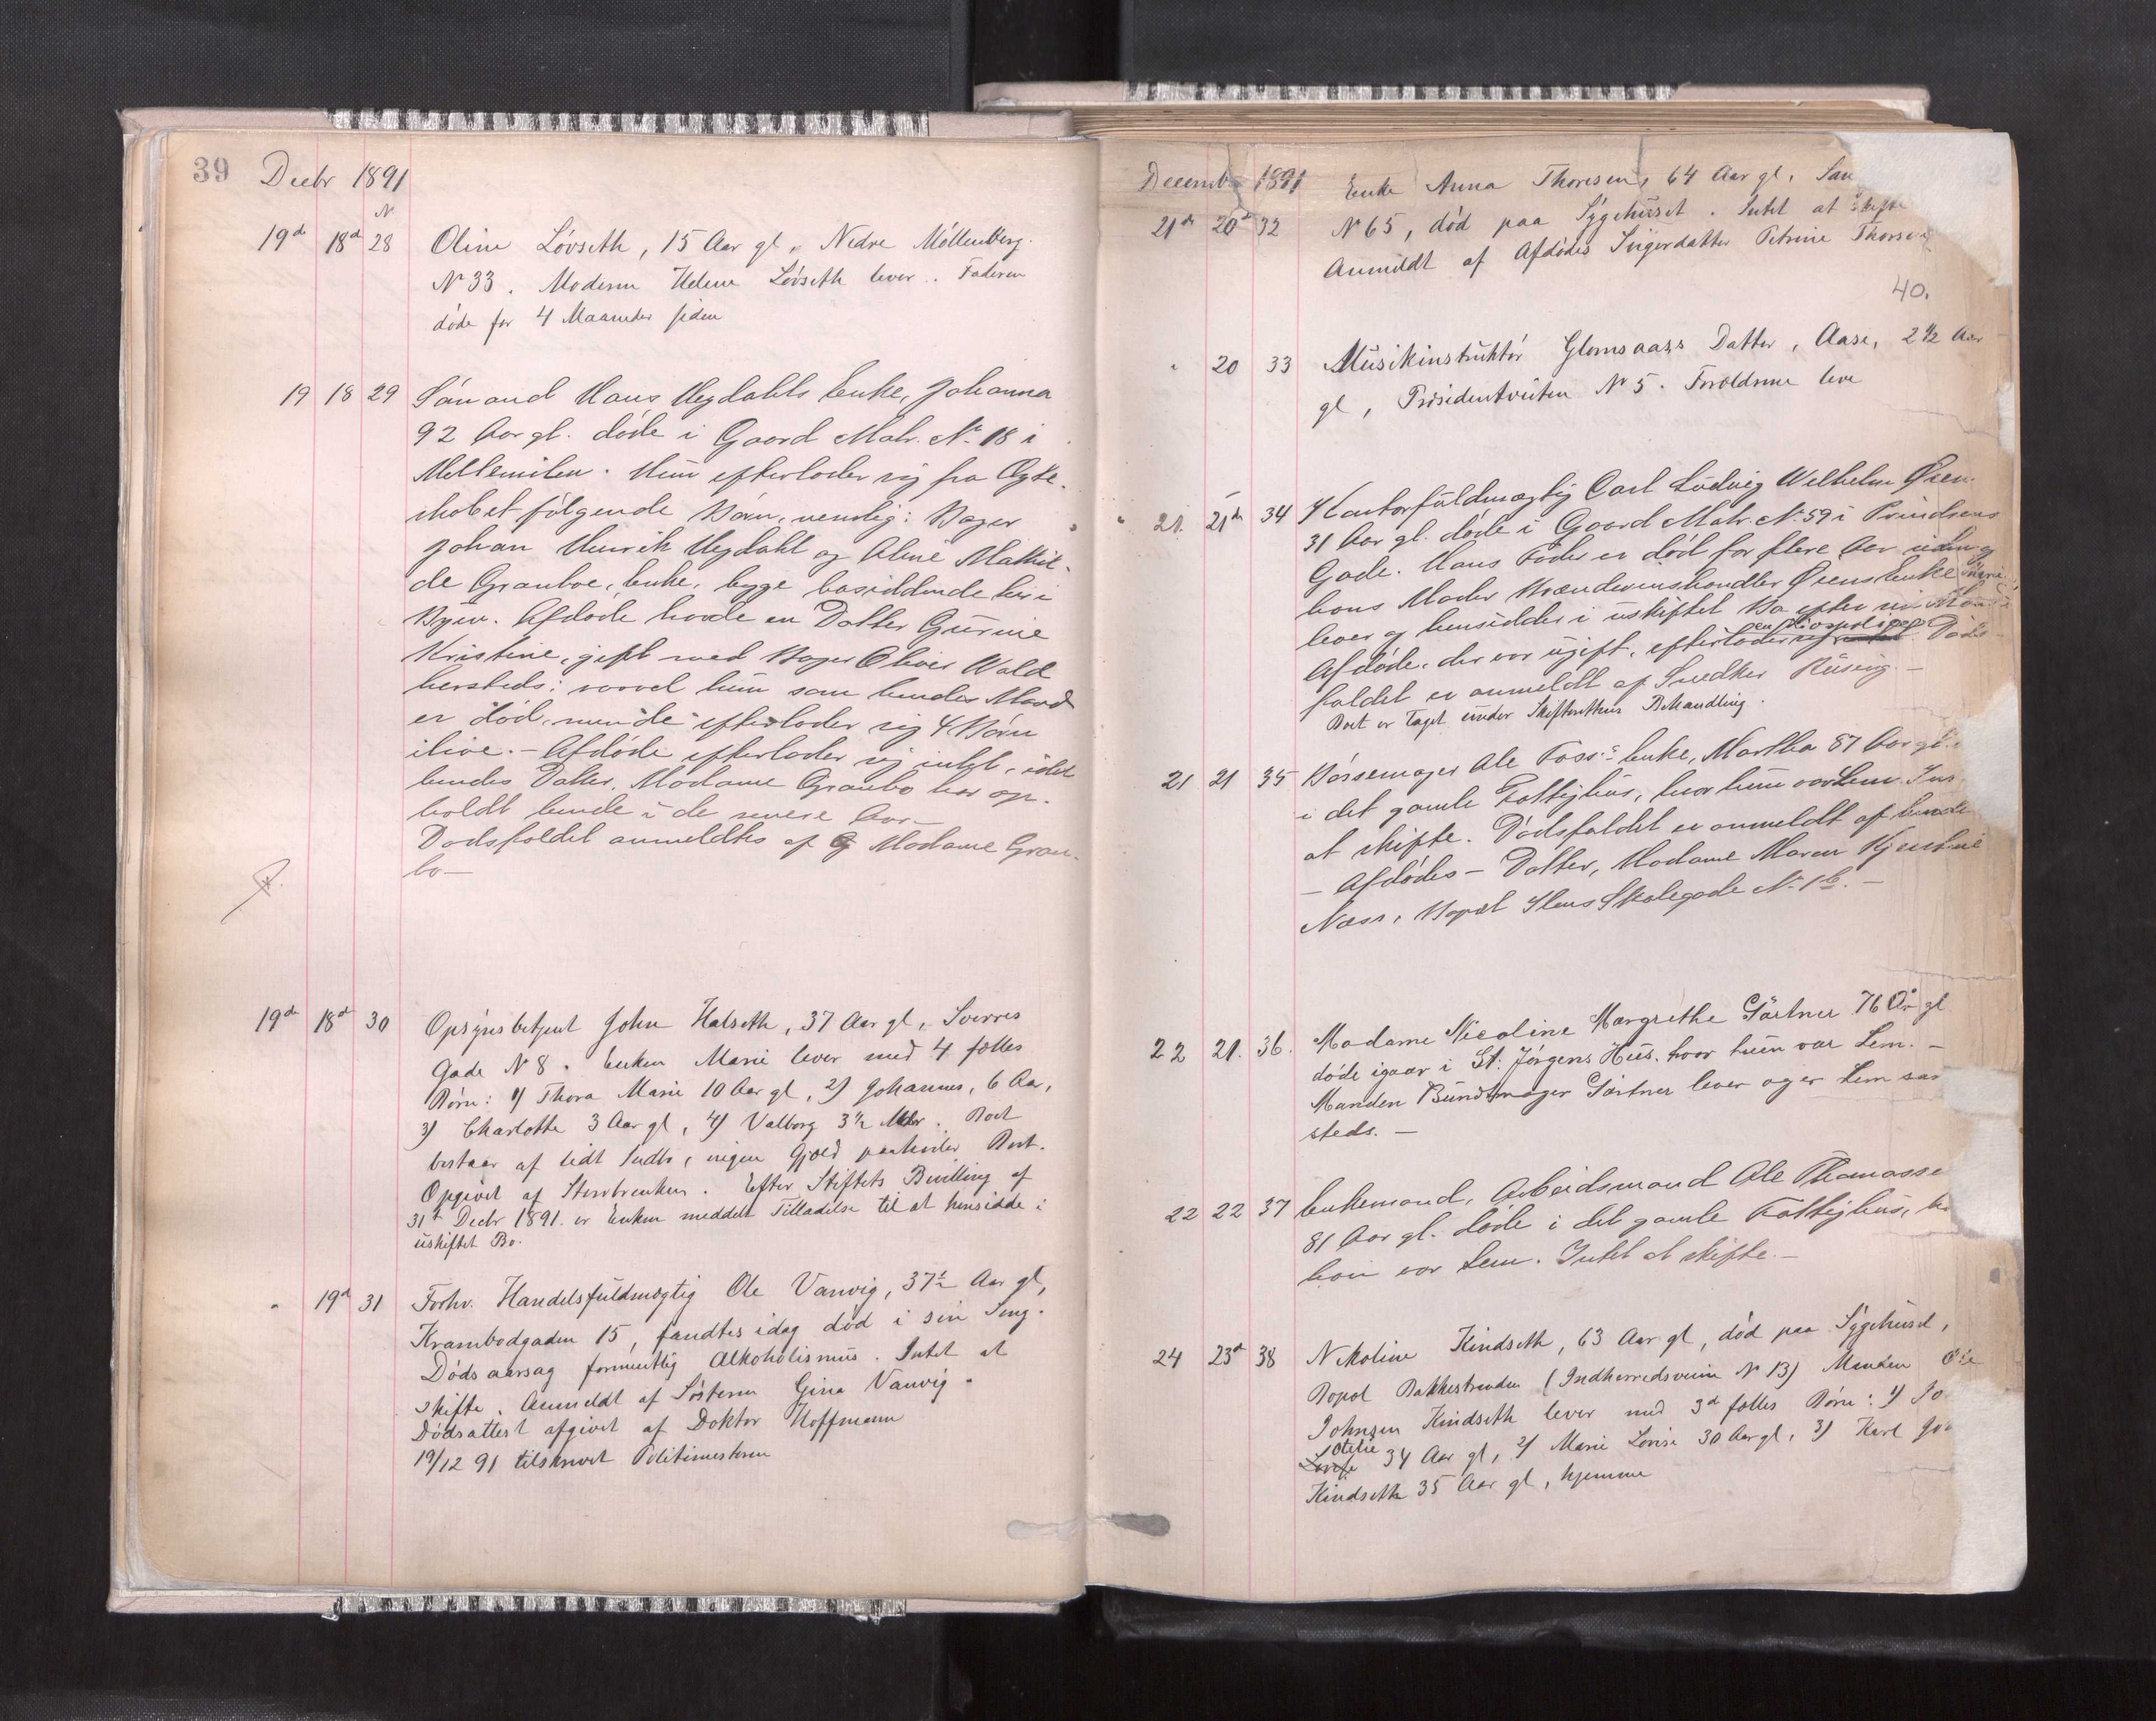 39 Decbr 1891
N
19de 18de 28 Oline Løvseth, 15 Aar gl. Nedre Møllenberg.
No 33. Moderen Helene Løvseth lever. Faderen
døde for 4 Maaneder siden
19 18 29 Hans Hegdahls Enke, Johanna
92 Aar gl. døde i Gaard Matr. No 18 i
Mellemilen. Hun efterlader sig fra Ægte-
skabet følgende Børn, nemlig: Bager
Johan Henrik Hegdahl og Aline Mathil-
de Granboe, Enke, begge bosiddende her i
Byen. Afdøde havde en Datter Gurine
Kristine, gift med Bager Oliver Wold
hersteds; saavel hun som hendes Mand
er død, men de efterlader sig 4 Børn
ilive. – Afdøde efterlader sig intet, idet
hendes Datter, Madame Granbo har op-
holdt hende i de senere Aar –
Dødsfaldet anmeldtes af Madame Gran-
bo –
19de 18de 30 Opsynsbetjent John Halseth, 37 Aar gl, Sverres
Gade No 8. Enken Marie lever med 4 fælles
Børn: 1) Thora Marie 10 Aar gl, 2) Johannes, 6 Aar,
3) Charlotte 3 Aar gl, 4) Valborg 3½ Mdr. Boet
bestaar af lidt Indbo, ingen Gjæld paahviler Boet.
Opgivet af Stervbrenken. Efter Stiftets Bevilling af
31te Decbr 1891 er Enken meddelt Tilladelse til at hensidde i
uskiftet Bo.
" 19de 31 Forhv. Handelsfuldmægtig Ole Vanvig, 37½ Aar gl,
Krambodgaden 15, fandtes idag død i sin Seng.
Dødsaarsag formentlig Alkoholismus. Intet at
skifte. Anmeldt af Søsteren Gina Vanvig.
Dødsattest afgivet af Doktor Hoffmann
19/12 91 tilskrevet Politimesteren
December 1891 Enke Anna Thoresen, 64 Aar gl, San
21de 20de 32 No 65, død paa Sygehuset. Intet at skifte
Anmeldt af Afdødes Svigerdatter Petrine Thoresen
40.
" 20 33 Musikinstruktør Glomsaass Datter, Aase, 2½ Aar
gl, Præsidentveiten No 5. Forældrene leve
21. 21de 34 Kontorfuldmægtig Carl Ludvig Wilhelm Øien
31 Aar gl. døde i Gaard Matr. No 59 i Prindsens
Gade. Hans Fader er død for flere Aar siden og
hans Moder Brændevinshandler Øiens Enke
lever og hensidder i uskiftet Bo efter sin Mand
Afdøde, der var ugift, efterlader Døds-
faldet er anmeldt af Snedker Rusing. –
Boet er taget under Skifterettens Behandling.
21 21 35 Børsemager Ole Foss's Enke, Martha 87 Aar gl.
i det gamle Fattighus, hvor hun var Lem. Intet
at skifte. Dødsfaldet er anmeldt af hendes
– Afdødes – Datter, Madame Maren Kjerstine
Næss, Bopæl Ilens Skolegade No 1 b. –
22 21. 36. Madame Nicoline Margrethe Gärtner 76 Aar gl
døde igaar i St. Jørgens Hus, hvor hun var Lem. –
Manden Bundtmager Gärtner lever og er Lem sam
steds. –
22 22 37 Enkemand, Arbeidsmand Ole Thomasse
81 Aar gl. døde i det gamle Fattighus,
han var Lem. Intet at skifte. –
24 23de 38 Nikoline Kindseth, 63 Aar gl, død paa Sygehuset,
Bopæl Bakkestranden (Indherredsveien No 13) Manden Ole
Johnsen Kindseth lever med 3de fælles Børn: 1) Jo
Otelie
Lovise 34 Aar gl, 2) Marie Lovise 30 Aar gl, 3) Karl
Kindseth 35 Aar gl, hjemme